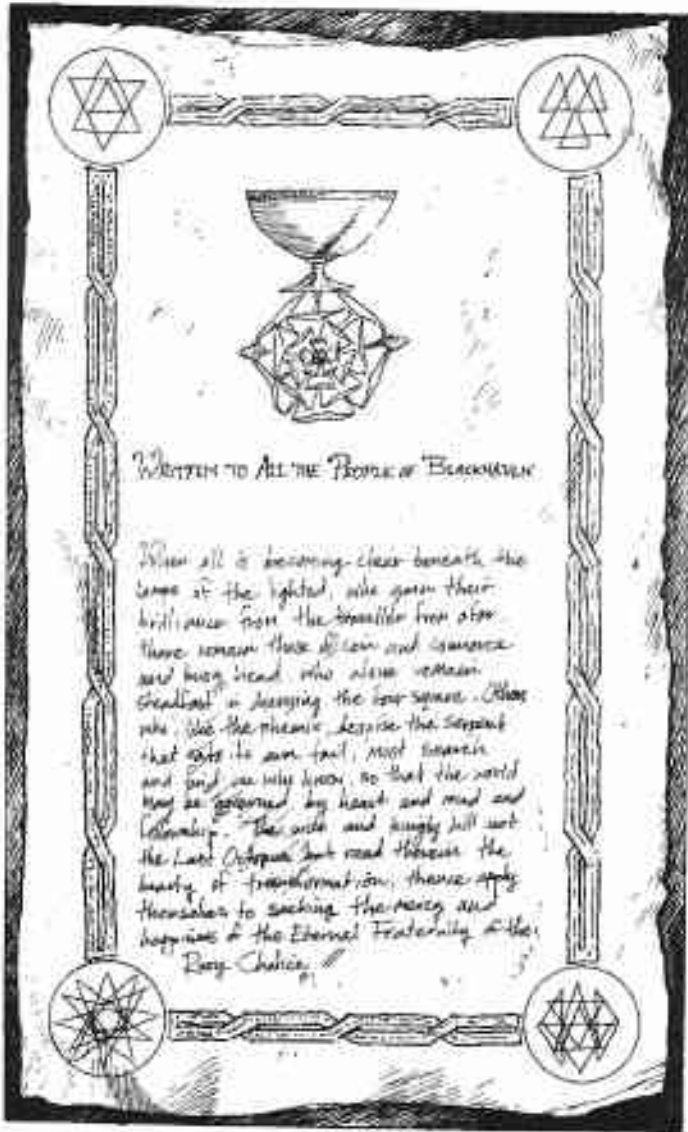 WRITTEN TO ALL THE PEOPLE OF BLACKHAVEN
When all is becoming clear beneath the
of the lighted, who their
brilliance from the traveller from afar
there remain those of coin and commerce
and busy head, who alone remain
steadfast in the four square. Others
who, like the phoenix, despise the serpent
that eats its own tail, must search
and find so that the world
may be governed by heart and mind and
fellowship. The wise and will not
the Last Octopus but read therein the
beauty of transformation; thence apply
themselves to seeking the mercy and
happiness of the Eternal Fraternity of the
Rosy Chalice